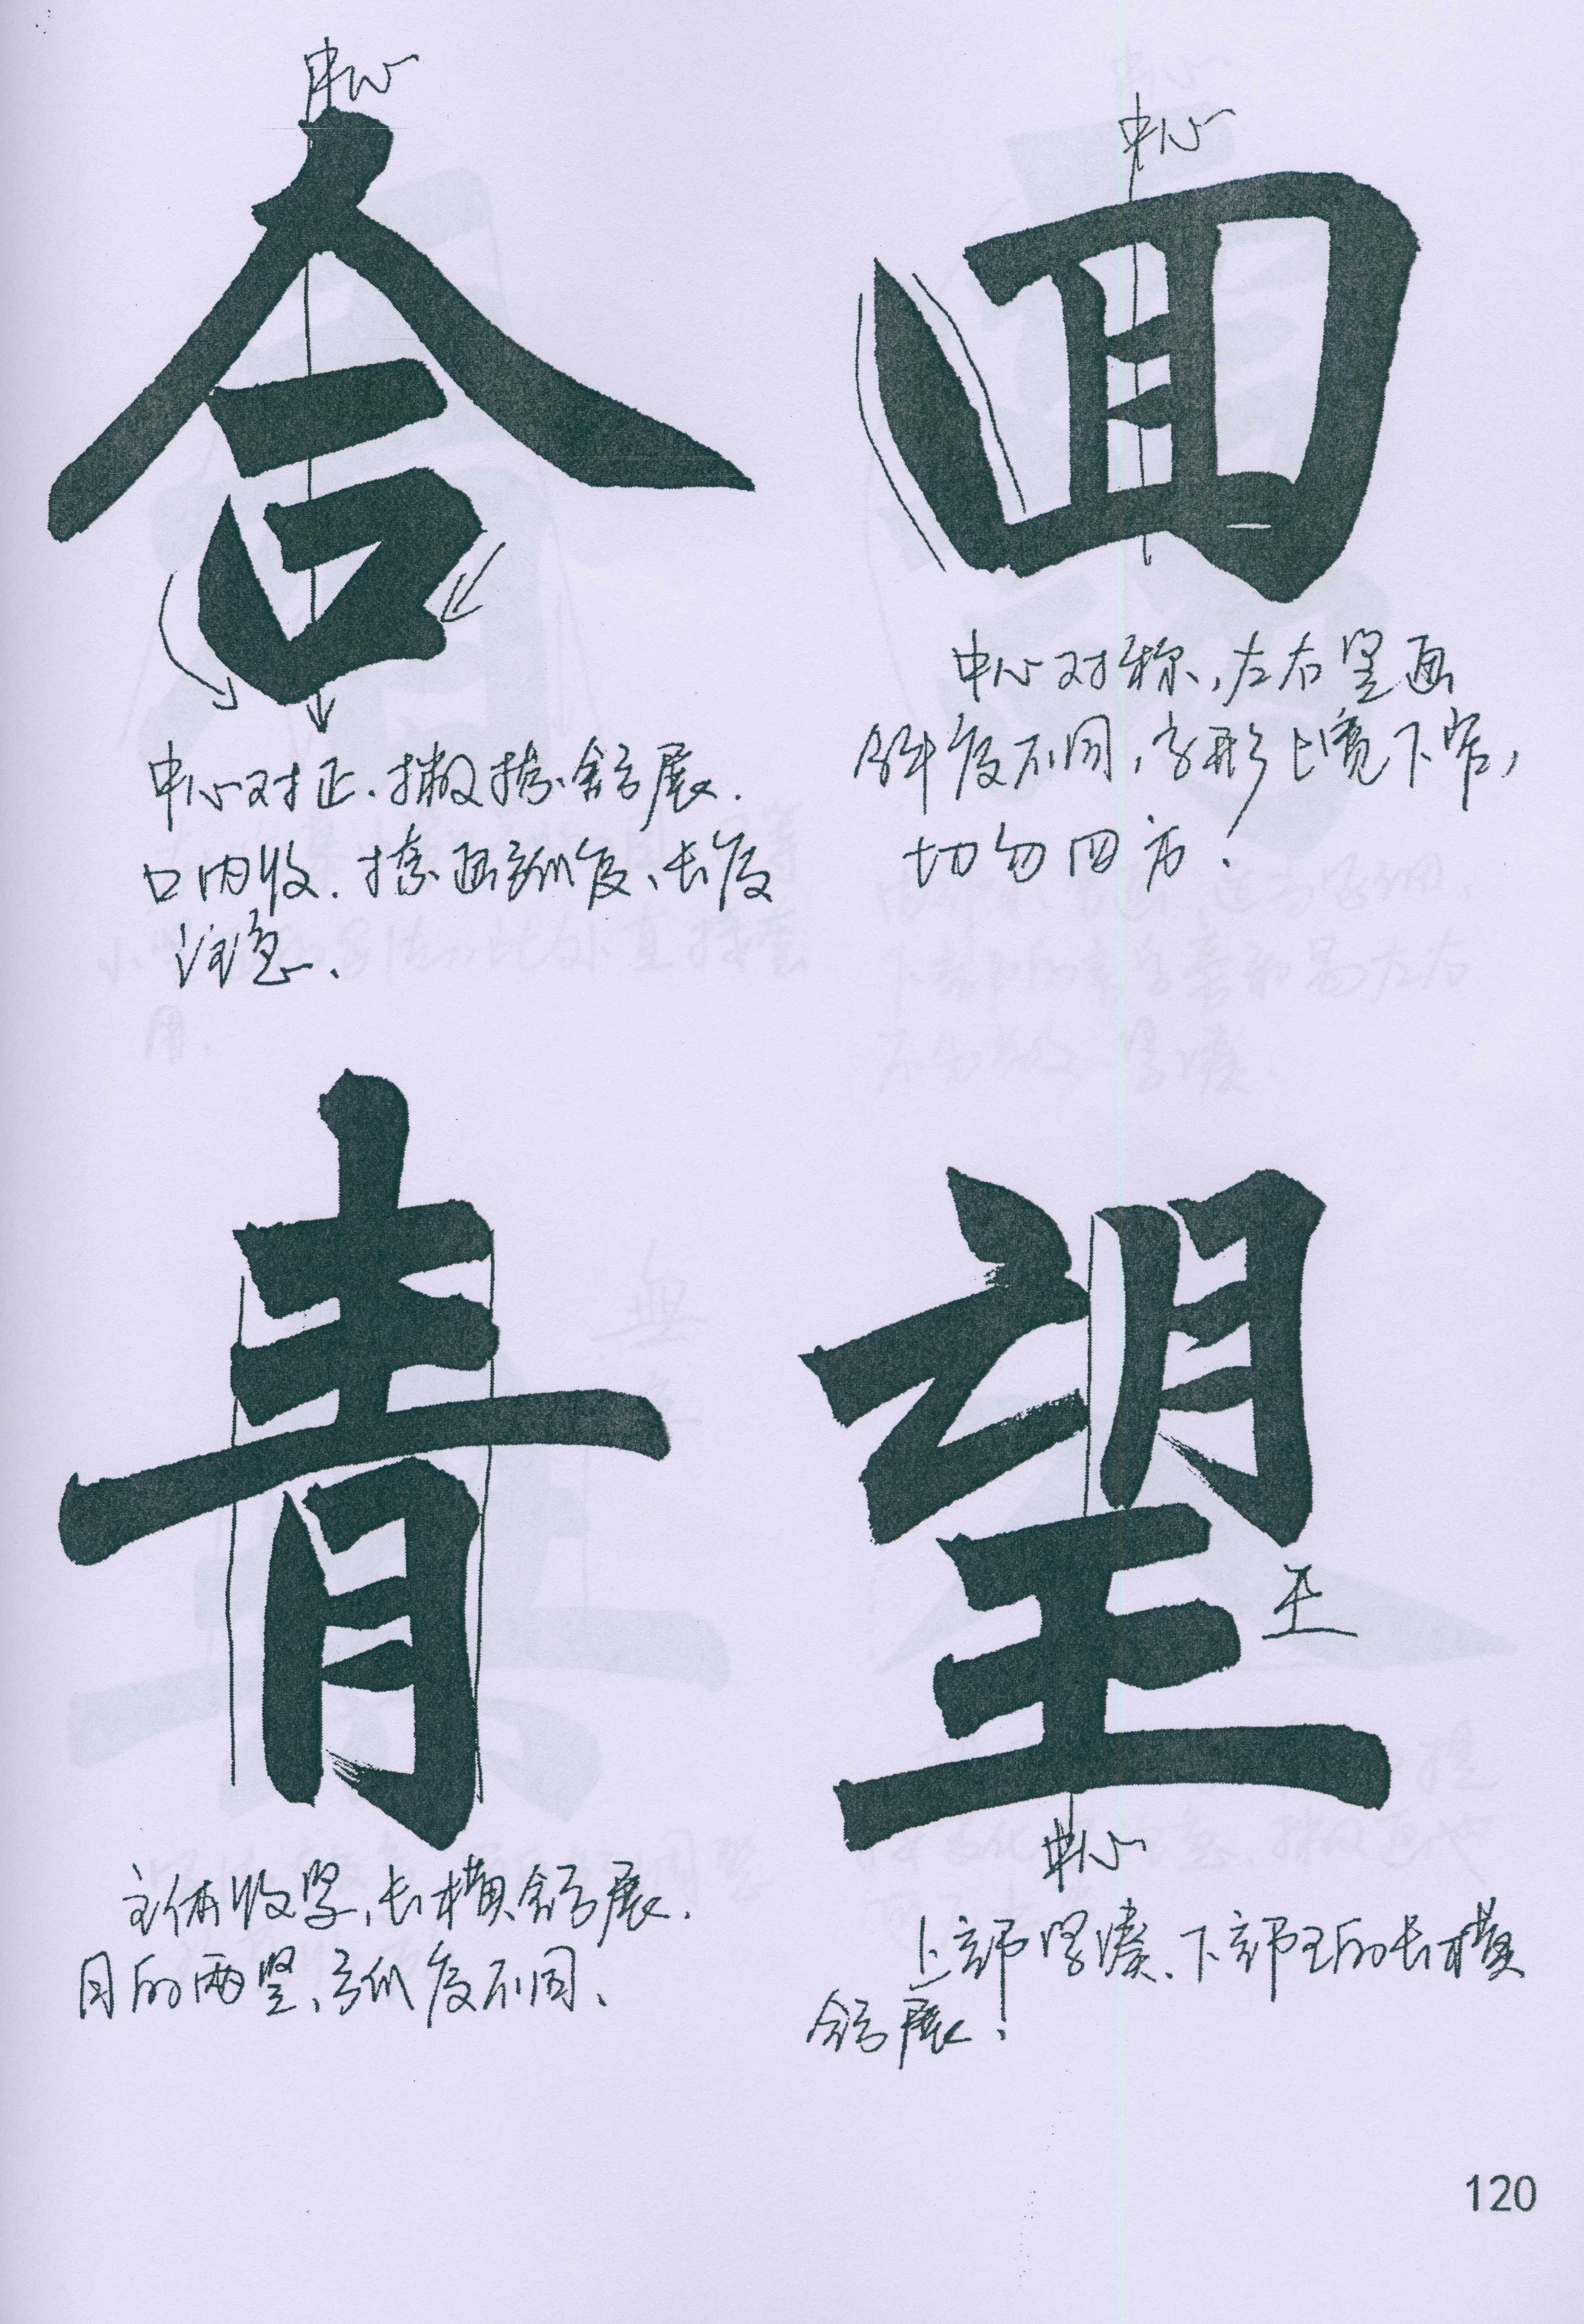 中心
合
中心对正、撇捺舒展.
口内收.捺画弧度、长度
注意、
中心
回
中心对称,左右竖画
斜度不同,字形上宽下窄,
切勿四方!
青
主体收紧,长横舒展.
月的两竖、弧度不同、
望
王
中心
上部紧凑、下部王的长横
舒展!
120